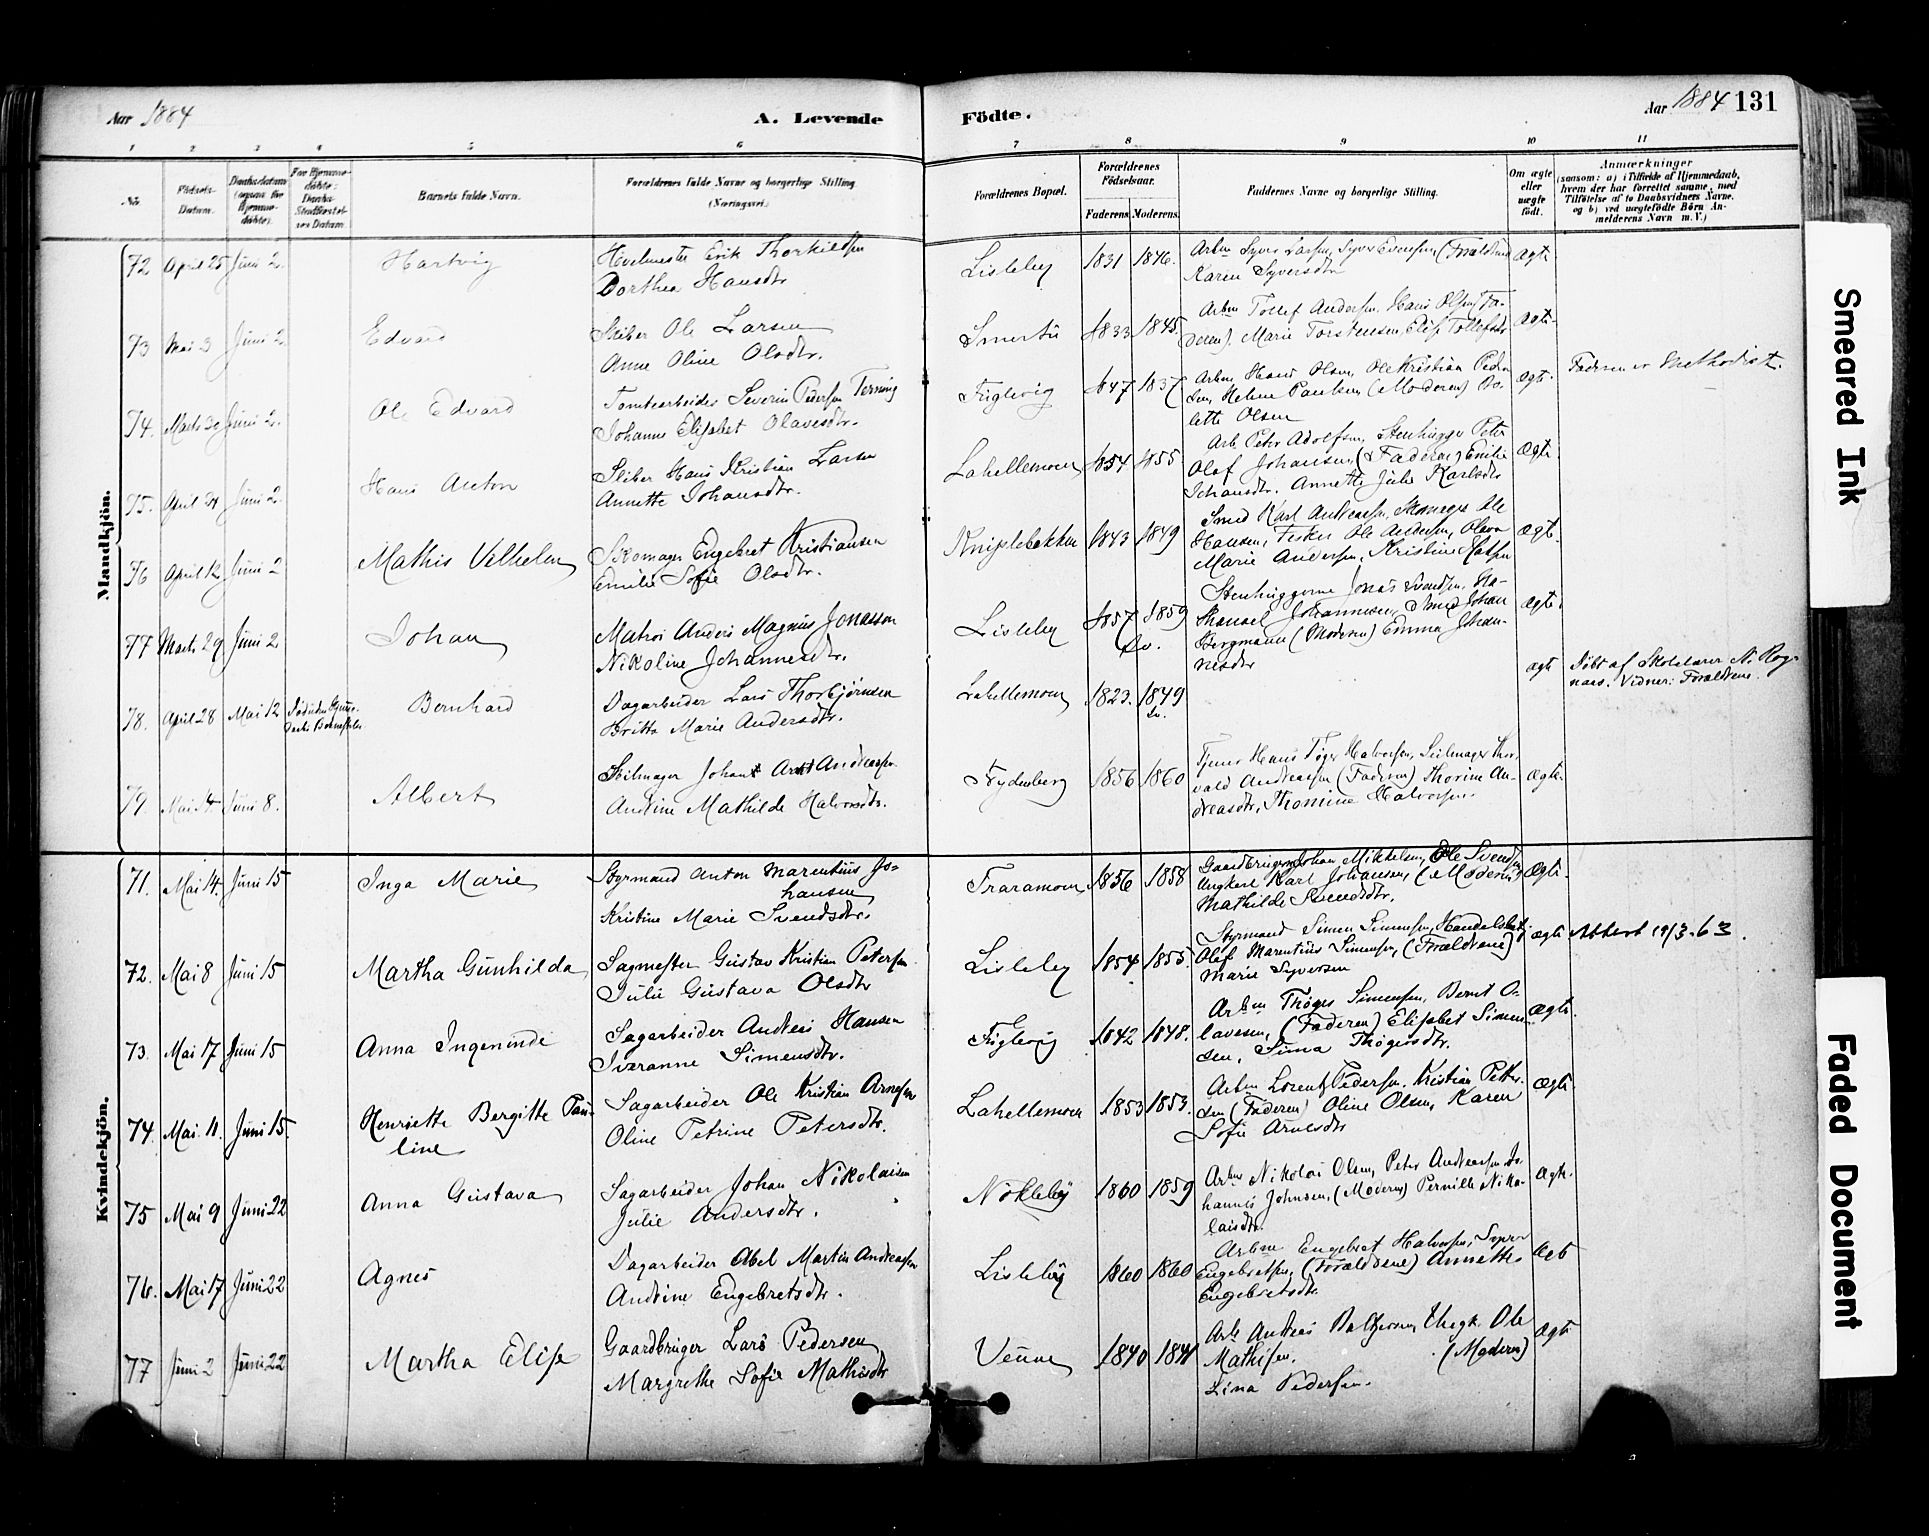 Aar 1884
A. Levende
Födte.
Aar 1884 131
1 2 3 4 5 6 7 8 9 10 11
No.
Födsels-
Datum.
Daabsdatum
(ogsaa for
Hjemme-
döbte).
For Hjemme-
döbte:
Daabs
Stadfæstel-
ses Datum.
Barnets fulde Navn.
Forældrenes fulde Navne og borgerlige Stilling.
(Næringsvei.)
Forældrenes Bopæl.
Forældrenes
Födselsaar.
Faderens. Moderens.
Faddernes Navne og borgerlige Stilling.
Om ægte
eller
uægte
födt.
Anmærkninger
(saasom: a) i Tilfælde af Hjemmedaab,
hvem der har forrettet samme, med
Tilföielse af to Daabsvidners Navne.
og b) ved uægtefödte Börn An-
melderens Navn m. V.)
Mandkjön.
72 April 25 Juni 2. Hartvig
Høvelmester Erik Thorkildsen
Dorthea Hansdtr
Lisleby 1831 1846.
Arbm Syver Larsen, Syver Evensen, (Forældrene)
Karen Syversdtr
Ægte
73 Mai 3 Juni 2 Edvard
Skiber Ole Larsen
Anne Oline Olsdtr.
Smertu 1833 1845
Arbm Tollef Andersen, Hans Olsen (Fa-
deren), Marie Torstensen, Elise Tollefsdtr
Ægte
74. Marts 30 Juni 2. Ole Edvard
Tomtearbeider Severin Pedersen Terning
Johanne Elisabet Olavesdtr.
Triglevig 1847 1837
Arbm Hans Olsen, Ole Kristian Peder-
sen, Helene Paulsen, (Moderen)
lette Olsen
Ægte.
Faderen er Methodist.
75. April 24 Juni 2 Hans Anton
Skiber Hans Kristian Larsen
Annette Johansdtr.
Lahellemoen 1854 1855
Arb. Petr Adolfsen, Stenhugger Peter
Olaf Johansen, (Faderen) Emilie
Johansdtr. Annette Julie Karlsdtr
Ægte
76 April 12 Juni 2 Mathis Vilhelm
Skomager Engebret Kristiansen
Emilie Sofie Olsdtr.
Kniplebakken 1843 1849
Smed Karl Andreasen, Skomager Ole
Hansen, Fisker Ole Andersen, Olava
Marie Andersen, Kristine
Ægte.
77 Marts 29 Juni 2 Johan
Matros Anders Magnus Jonasson
Nikoline Johannesdtr.
Lisleby 1857 1859
Sv.
Stenhuggerne Jonas Svendsen,
Johannesen, Smed Johan
Bergmann (Moderen) Emma Johan-
nesdtr
Ægte.
78. April 28 Mai 12 Bernhard
Dagarbeider Lars Thorbjørnsen
Britta Marie Andersdtr.
Lahellemoen 1823. 1849
Sv.
ægte
Døbt af Skolelærer N. Rog-
naas. Vidner: Forældrene.
79. Mai 14 Juni 8. Albert
Seilmager Johan Arnt Andreasen
Andrine Mathilde Halvorsdtr.
Frydenberg 1856 1860
Tjener Hans Tøger Halvorsen, Seilmager Thor-
vald Andreassen (Faderen) Thorine An-
dreasdtr, Thomine Halvorsen.
Ægte.
Kvindekjön.
71. Mai 14. Juni 15 Inga Marie
Styrmand Anton Marentius Jo-
hansen
Kristine Marie Svendsdtr.
Traramoen 1856 1858
Gaardbruger Johan Mikkelsen, Ole Svendsen
Ungkarl Karl Johansen, (Moderen)
Mathilde Svendsdtr.
Ægte.
72. Mai 8 Juni 15 Martha Gunhilda
Sagmester Gustav Kristian Petersen
Julie Gustava Olsdtr
Lisleby 1854 1855.
Styrmand Simen Simensen, Handelsbetj.
Olaf Marentius Simensen, (Forældrene)
Marie Syversen
ægte
Attest 19/3-63.
73. Mai 17 Juni 15 Anna Ingeninde
Sagarbeider Andreas Hansen
Iveranne Simensdtr.
Triglevig 1842 1848.
Arbm Thøger Simensen, Bernt O-
lavesen, (Faderen) Elisabet Simen-
sen, Sima Thøgersdtr.
Ægte.
74. Mai 11. Juni 15. Henriette Bergitte Pau-
line
Sagarbeider Ole Kristian Arnesen
Oline Petrine Petersdtr.
Lahellemoen 1853 1853.
Arbm Lorentz Pedersen, Kristian Petter-
sen (Faderen) Oline Olsen, Karen
Sofie Arnesdtr
Ægte
75 Mai 9 Juni 22 Anna Gustava
Sagarbeider Johan Nikolaisen
Julie Andersdtr.
Nøkleby 1860 1859
Arbm Nikolai Olsen, Peter Andreassen Jo-
hannes Johnsen, (Moderen) Pernille Niko-
laisdtr.
Ægte.
76. Mai 17 Juni 22 Agnes
Dagarbeider Abel Martin Andreassen
Andrine Engebretsdtr.
Lisleby 1860 1860
Arbm Engebret Halvorsen, Syver
Engebretsen, (Forældrene) Annette
Engebretsdtr
Ægte
77 Juni 2 Juni 22 Martha Elise
Gaardbruger Lars Pedersen
Margrethe Sofie Mathisdtr
Veum 1840 1841
Arb. Andreas Baltzersen, Ungk. Ole
Mathisen. (Moderen)
Lina Pedersen.
Ægte
Smeared Ink
Faded Document